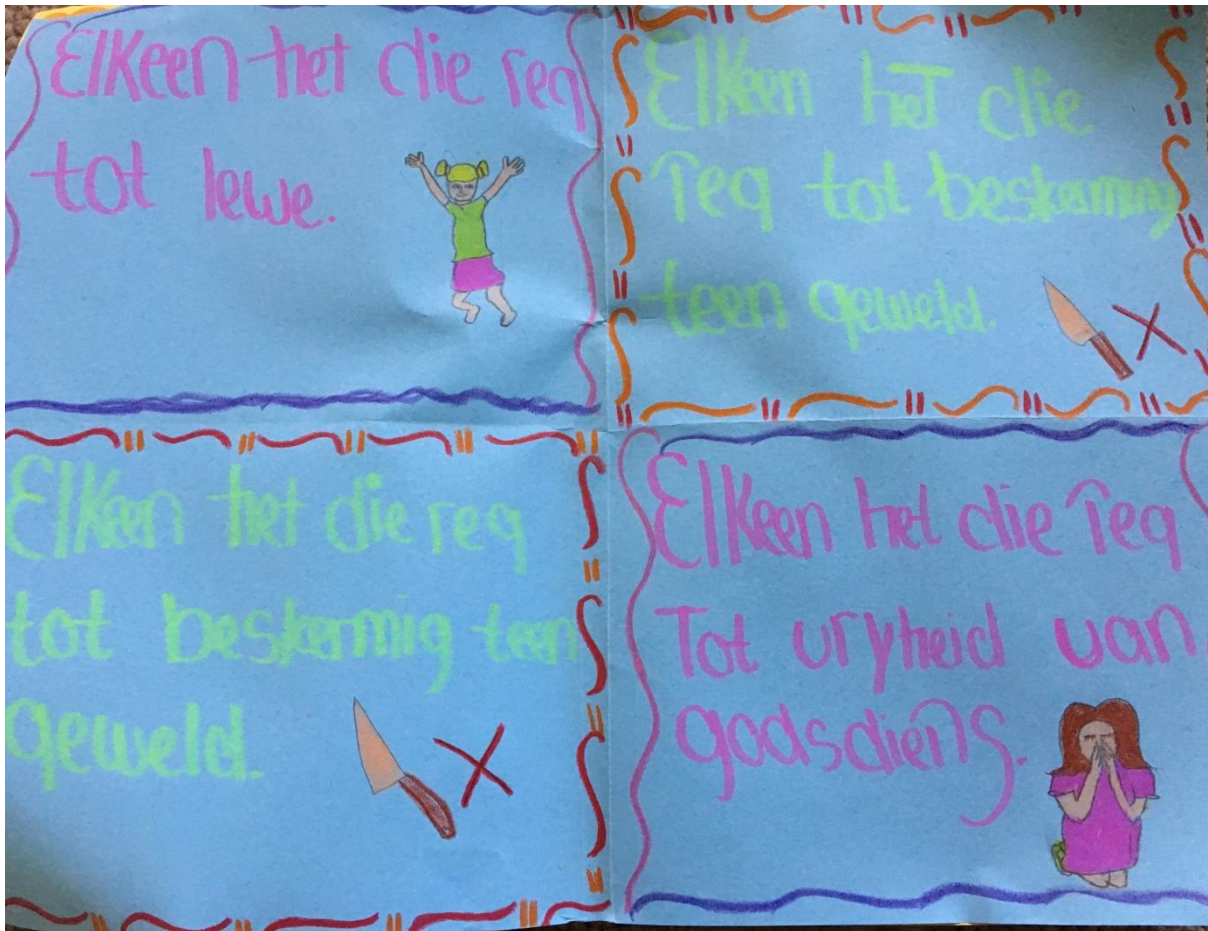 Elkeen het die reg
tot lewe.
Elkeen het die
reg tot beskerming
teen geweld.
Elkeen het die reg
tot beskermig teen
geweld.
Elkeen het die reg
Tot vryheid van
godsdiens.